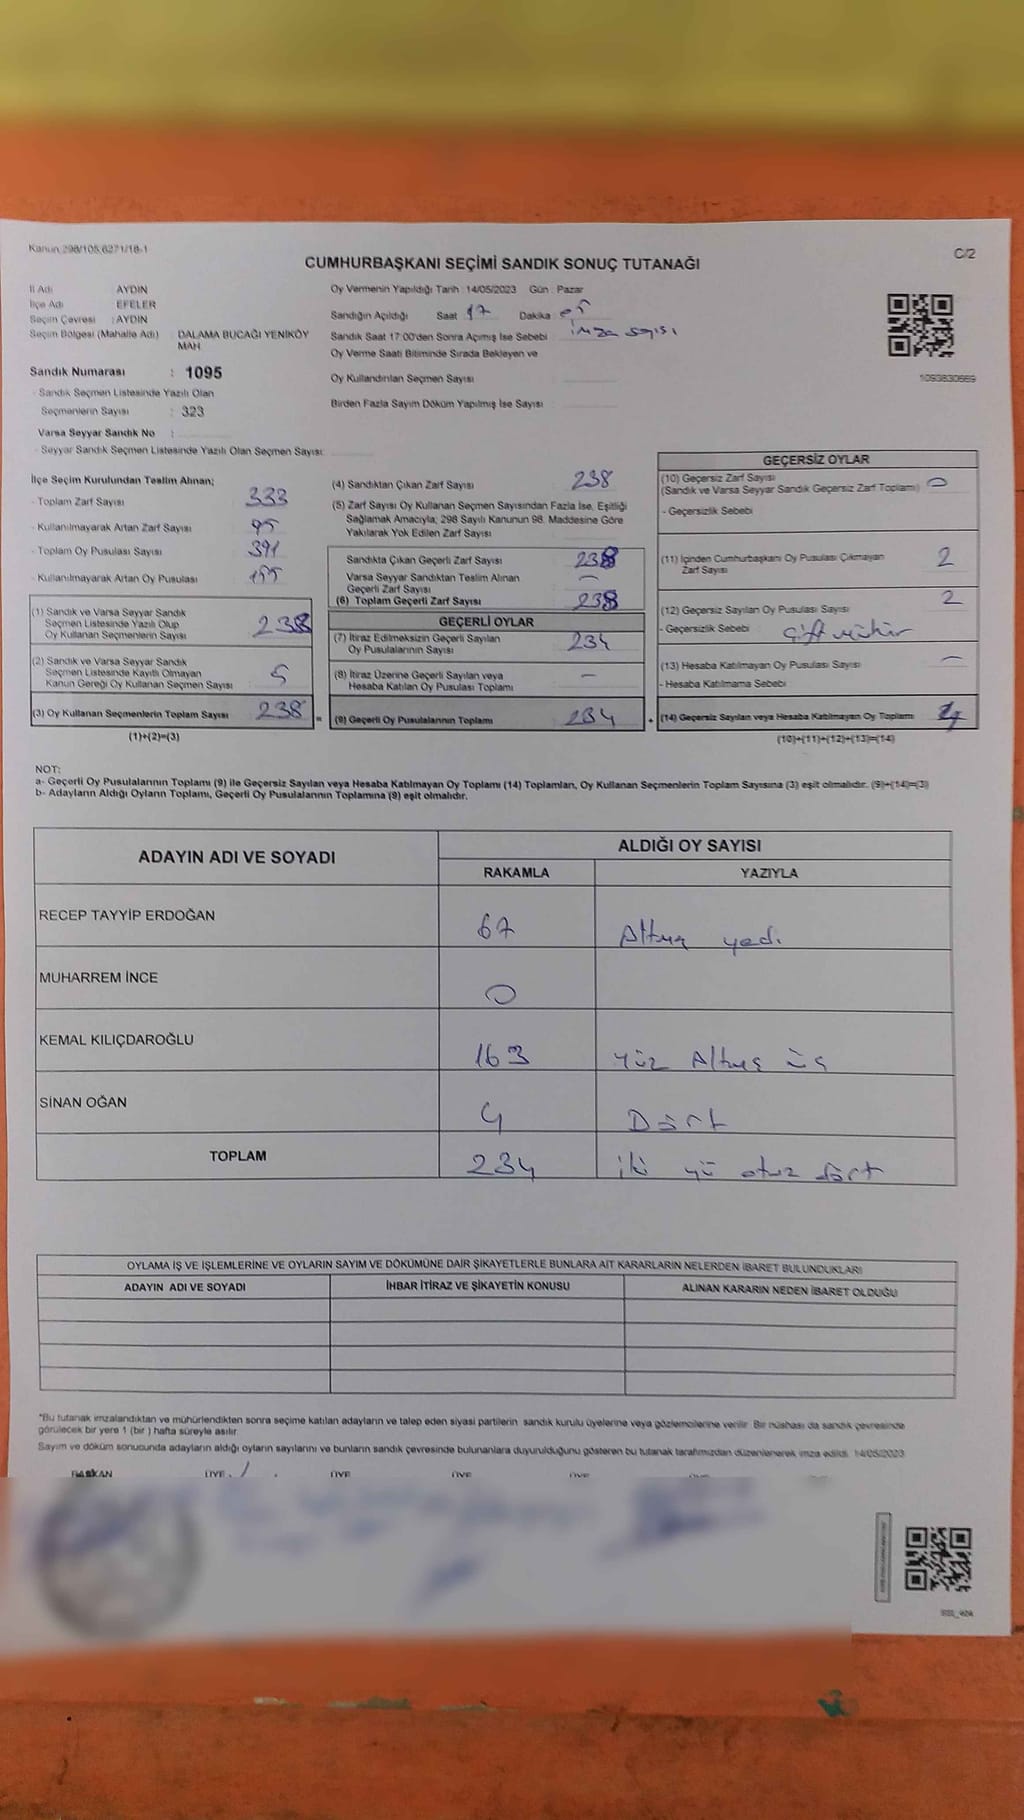 Kanun:298/105,6271/18-1
C/2
CUMHURBAŞKANI SEÇİMİ SANDIK SONUÇ TUTANAĞI
İl Adı AYDIN
İlçe Adı EFELER
Seçim Çevresi : AYDIN
Seçim Bölgesi (Mahalle Adı) : DALAMA BUCAĞI YENİKÖY MAH
Sandık Numarası : 1095
- Sandık Seçmen Listesinde Yazılı Olan
Seçmenlerin Sayısı : 323
Varsa Seyyar Sandık No :
- Seyyar Sandık Seçmen Listesinde Yazılı Olan Seçmen Sayısı:
Oy Vermenin Yapıldığı Tarih : 14/05/2023 Gün : Pazar
Sandığın Açıldığı Saat 17 Dakika 05
Sandık Saat 17:00'den Sonra Açımış İse Sebebi imza sayısı
Oy Verme Saati Bitiminde Sırada Bekleyen ve
Oy Kullandırılan Seçmen Sayısı
Birden Fazla Sayım Döküm Yapılmış İse Sayısı
1093830669
İlçe Seçim Kurulundan Teslim Alınan;
- Toplam Zarf Sayısı 333
- Kullanılmayarak Artan Zarf Sayısı 95
- Toplam Oy Pusulası Sayısı 391
- Kullanılmayarak Artan Oy Pusulası
(1) Sandık ve Varsa Seyyar Sandık
Seçmen Listesinde Yazılı Olup
Oy Kullanan Seçmenlerin Sayısı
(2) Sandık ve Varsa Seyyar Sandık
Seçmen Listesinde Kayıtlı Olmayan
Kanun Gereği Oy Kullanan Seçmen Sayısı 5
(3) Oy Kullanan Seçmenlerin Toplam Sayısı 238 =
(1)+(2)=(3)
(4) Sandıktan Çıkan Zarf Sayısı 238
(5) Zarf Sayısı Oy Kullanan Seçmen Sayısından Fazla İse, Eşitliği
Sağlamak Amacıyla; 298 Sayılı Kanunun 98. Maddesine Göre
Yakılarak Yok Edilen Zarf Sayısı
Sandıkta Çıkan Geçerli Zarf Sayısı 238
Varsa Seyyar Sandıktan Teslim Alınan
Geçerli Zarf Sayısı –
(6) Toplam Geçerli Zarf Sayısı 238
GEÇERLİ OYLAR
(7) İtiraz Edilmeksizin Geçerli Sayılan
Oy Pusulalarının Sayısı 234
(8) İtiraz Üzerine Geçerli Sayılan veya
Hesaba Katılan Oy Pusulası Toplamı –
(9) Geçerli Oy Pusulalarının Toplamı 234 +
GEÇERSİZ OYLAR
(10) Geçersiz Zarf Sayısı
(Sandık ve Varsa Seyyar Sandık Geçersiz Zarf Toplamı) 0
- Geçersizlik Sebebi
(11) İçinden Cumhurbaşkanı Oy Pusulası Çıkmayan
Zarf Sayısı 2
(12) Geçersiz Sayılan Oy Pusulası Sayısı 2
- Geçersizlik Sebebi Çift mühür
(13) Hesaba Katılmayan Oy Pusulası Sayısı –
- Hesaba Katılmama Sebebi
(14) Geçersiz Sayılan veya Hesaba Katılmayan Oy Toplamı 4
(10)+(11)+(12)+(13)=(14)
NOT:
a- Geçerli Oy Pusulalarının Toplamı (9) ile Geçersiz Sayılan veya Hesaba Katılmayan Oy Toplamı (14) Toplamları, Oy Kullanan Seçmenlerin Toplam Sayısına (3) eşit olmalıdır. (9)+(14)=(3)
b- Adayların Aldığı Oyların Toplamı, Geçerli Oy Pusulalarının Toplamına (9) eşit olmalıdır.
ADAYIN ADI VE SOYADI
ALDIĞI OY SAYISI
RAKAMLA YAZIYLA
RECEP TAYYİP ERDOĞAN 67 Altmış yedi
MUHARREM İNCE 0
KEMAL KILIÇDAROĞLU 163 yüz Altmış üç
SİNAN OĞAN 4 Dört
TOPLAM 234 iki yü otuz dört
OYLAMA İŞ VE İŞLEMLERİNE VE OYLARIN SAYIM VE DÖKÜMÜNE DAİR ŞİKAYETLERLE BUNLARA AİT KARARLARIN NELERDEN İBARET BULUNDUKLARI
ADAYIN ADI VE SOYADI İHBAR İTİRAZ VE ŞİKAYETİN KONUSU ALINAN KARARIN NEDEN İBARET OLDUĞU
*Bu tutanak imzalandıktan ve mühürlendikten sonra seçime katılan adayların ve talep eden siyasi partilerin sandık kurulu üyelerine veya gözlemcilerine verilir. Bir nüshası da sandık çevresinde
görülecek bir yere 1 (bir ) hafta süreyle asılır.
Sayım ve döküm sonucunda adayların aldığı oyların sayılarını ve bunların sandık çevresinde bulunanlara duyurulduğunu gösteren bu tutanak tarafımızdan düzenlenerek imza edildi. 14/05/2023
BAŞKAN ÜYE ÜYE ÜYE ÜYE ÜYE